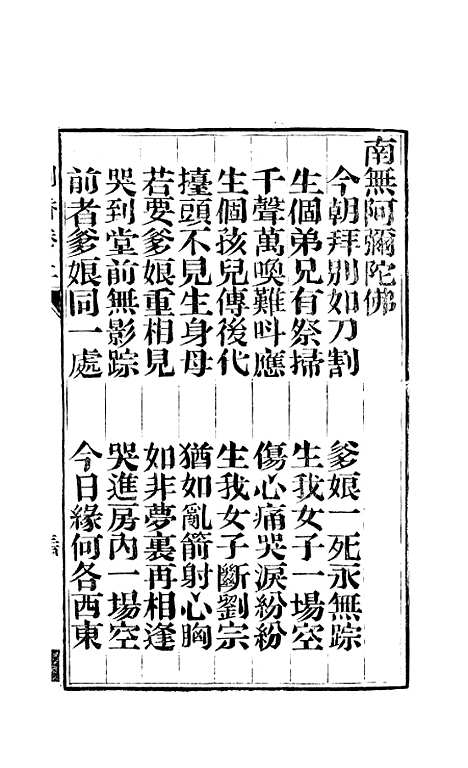 南無阿彌陀佛
今朝拜别如刀割　爹娘一死永無踪
生個弟兄有祭掃　生我女子一場空
千聲萬喚難呌應　傷心痛哭淚紛紛
生個孩兒傳後代　生我女子斷劉宗
擡頭不見生身母　猶如亂箭射心胸
若要爹娘重相見　如非夢裏再相逢
哭到堂前無影踪　哭進房內一場空
前者爹娘同一處　今日緣何各西東